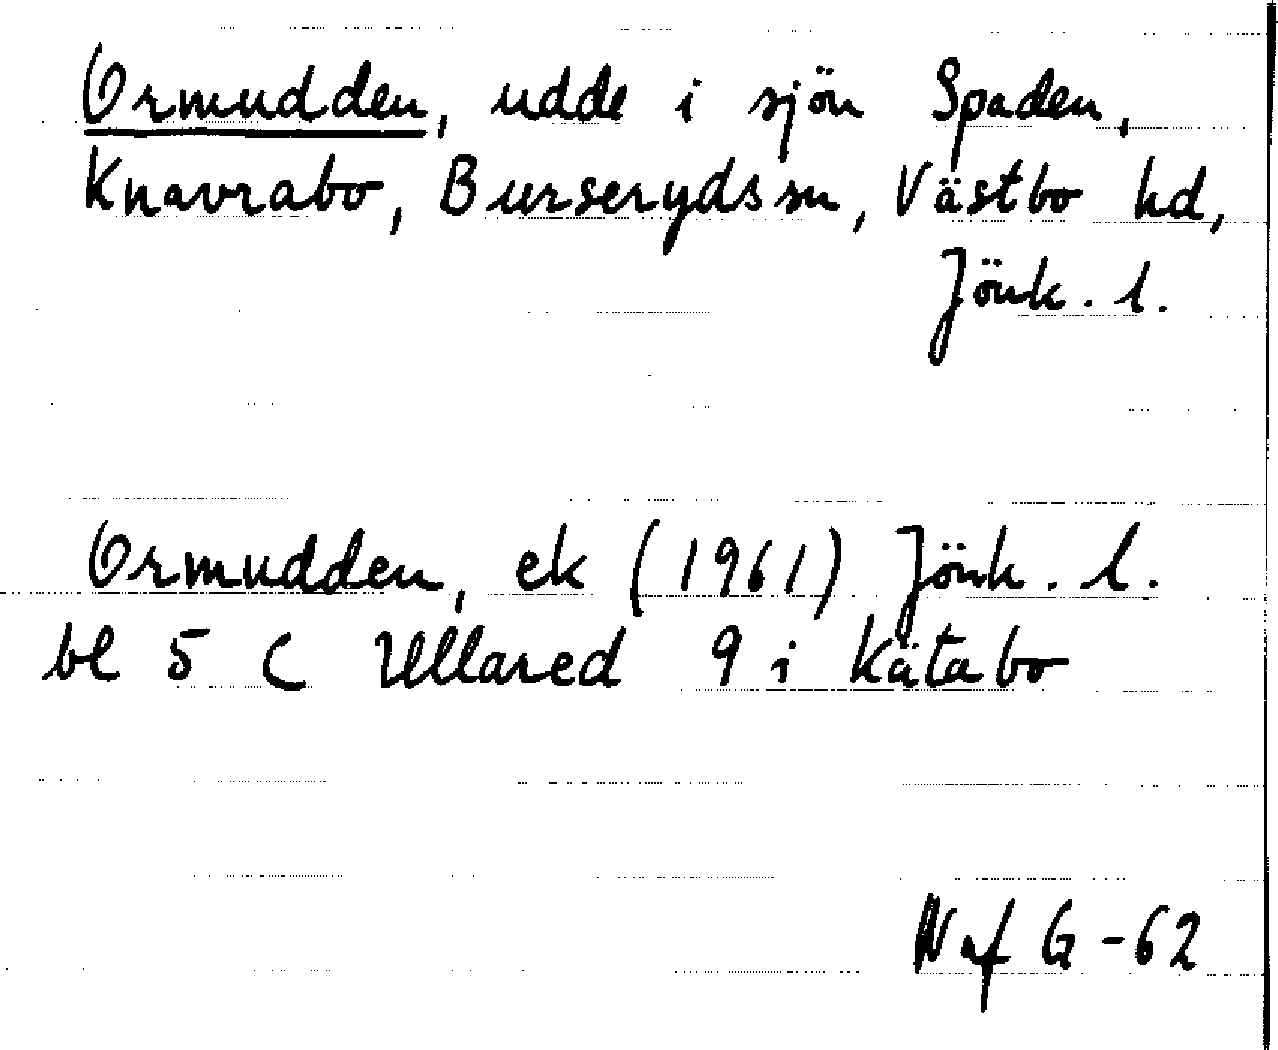 Ormudden, udde i sjön Spaden,
Knavrabo, Burseryds sn, Västbo hd,
Jönk. l.
Ormudden, ek (1961) Jönk. l.
bl 5 C Ullared 9 i Kätabo
N af G -62